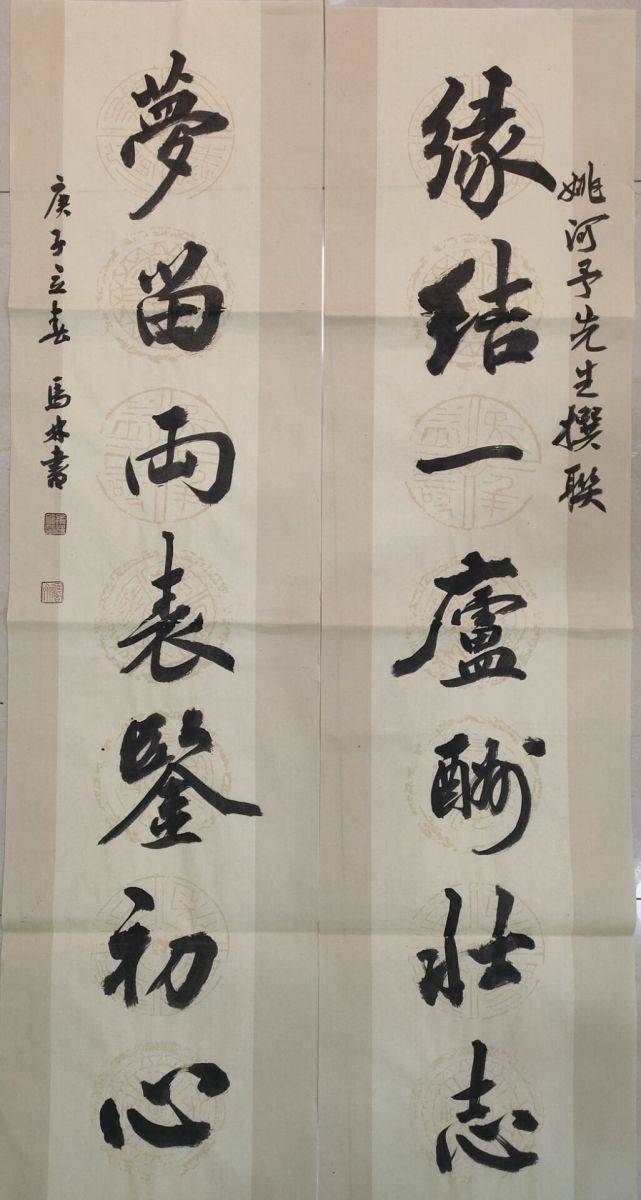 姚河予先生撰聯
緣結一廬酬壯志
夢留兩表鑒初心
庚子立春 馬林書